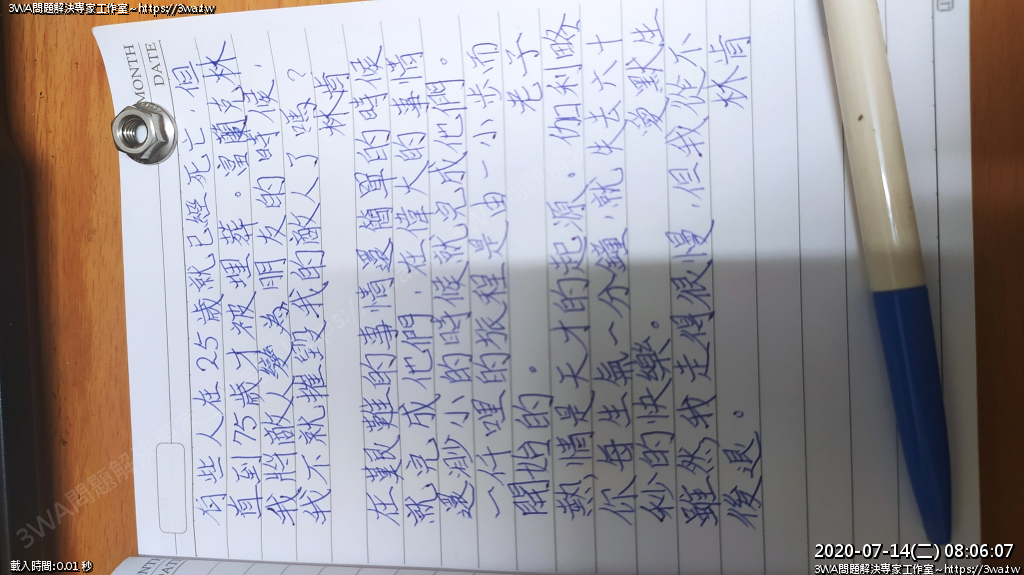 3WA問題解決專家工作室~https://3wa.tw
3WA問題解決專家工作室~https://3wa.tw
MONTH
DATE
有些人在25歲就已經死亡,但
直到75歲才被埋葬。富蘭克林
我將敵人變為朋友的時候,
我不就摧毀我的敵人了嗎?
林肯
在艱難的事情還簡單的時候
就完成他們,在偉大的事情
還渺小的時候就完成他們。
一千哩的旅程是由一小步而
開始的。 老子
熱情是天才的起源。 伽利略
你每生氣一分鐘,就失去六十
秒的快樂。 愛默生
雖然我走得很慢,但我從不
後退。 林肯
載入時間:0.01 秒
2020-07-14(二) 08:06:07
3WA問題解決專家工作室~https://3wa.tw